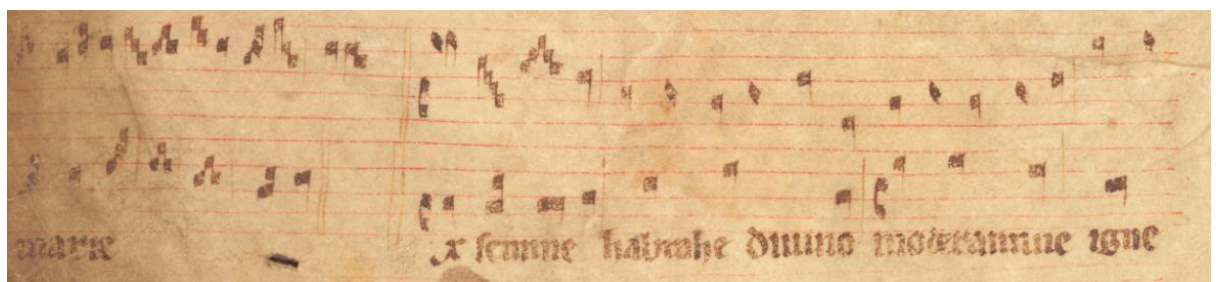 marie x semine habrahe diuino moderamine igne